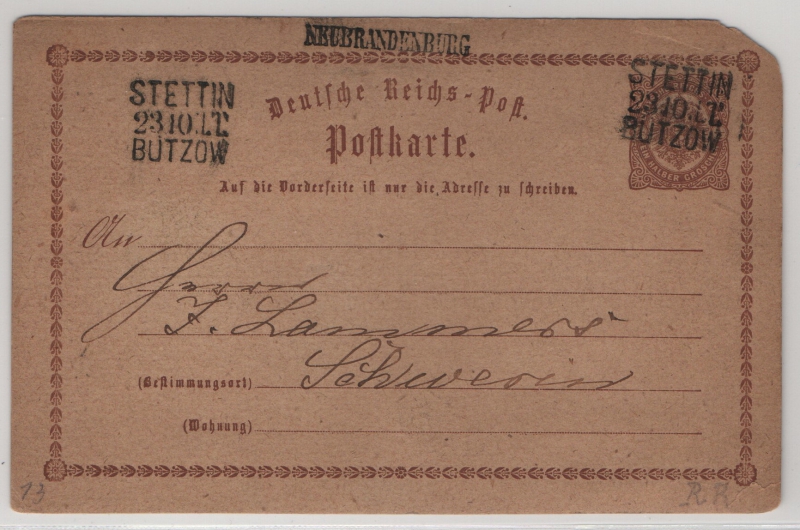 NEUBRANDENBURG
STETTIN
23 10.II.
BÜTZOW
STETTIN
23 10.II.
BÜTZOW
EIN HALBER GROSCHEN
Deutsche Reichs-Post.
Postkarte.
Auf die Vorderseite ist nur die Adresse zu schreiben.
An
Herrn
J. Lammers
Schwerin
(Bestimmungsort)
(Wohnung)
13
RR